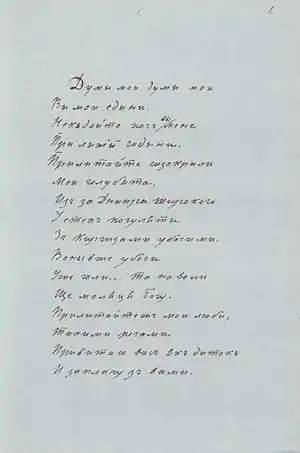 1.
Думы мои думы мои
Вы мои едыни,
Некыдайте хочъ вы мене
При лыхій годыни.
Прилитайте сизокрили
Мои голубята,
Изъ за Днипра широкого
У степъ погуляти
Зъ киргизами убогими.
Вонывже убоги
Уже голи... та на воли
Ще молятця богу.
Прилитайтежъ мои любы,
Тихими речами
Привитаю васъ якъ дитокъ
И заплачу зъ вами.